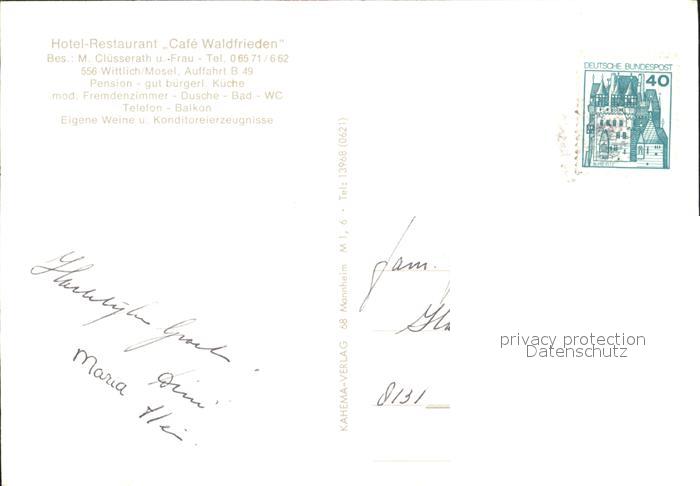 Hotel-Restaurant „Café Waldfrieden"
Bes.: M. Clüsserath u. Frau - Tel. 06571/662
556 Wittlich/Mosel, Auffahrt B 49
Pension - gut bürgerl. Küche
mod. Fremdenzimmer - Dusche - Bad - WC
Telefon - Balkon
Eigene Weine u. Konditoreierzeugnisse
Maria
KAHEMA-VERLAG 68 Mannheim M 1, 6 · Tel: 13968 (0621)
DEUTSCHE BUNDESPOST
40
Fam.
8131
privacy protection
Datenschutz